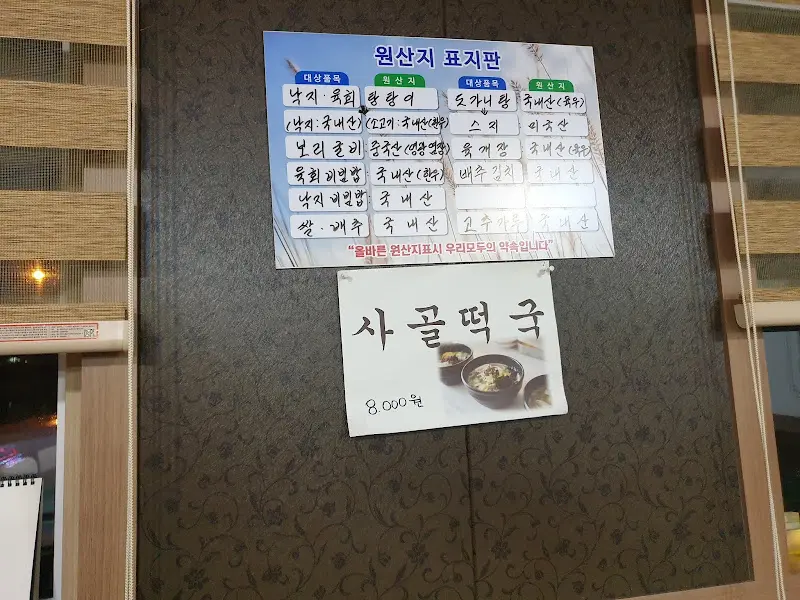 원산지 표지판
대상품목 원산지 대상품목 원산지
낙지·육회 탕탕이 도가니탕 국내산(육우)
(낙지:국내산) (소고기:국내산(한우) 스지 미국산
보리굴비 중국산(영광염장) 육개장 국내산(육우)
육회비빔밥 국내산(한우) 배추김치 국내산
낙지비빔밥 국내산
쌀·배추 국내산 고추가루 국내산
"올바른 원산지표시 우리모두의 약속입니다"
사골떡국
8.000원